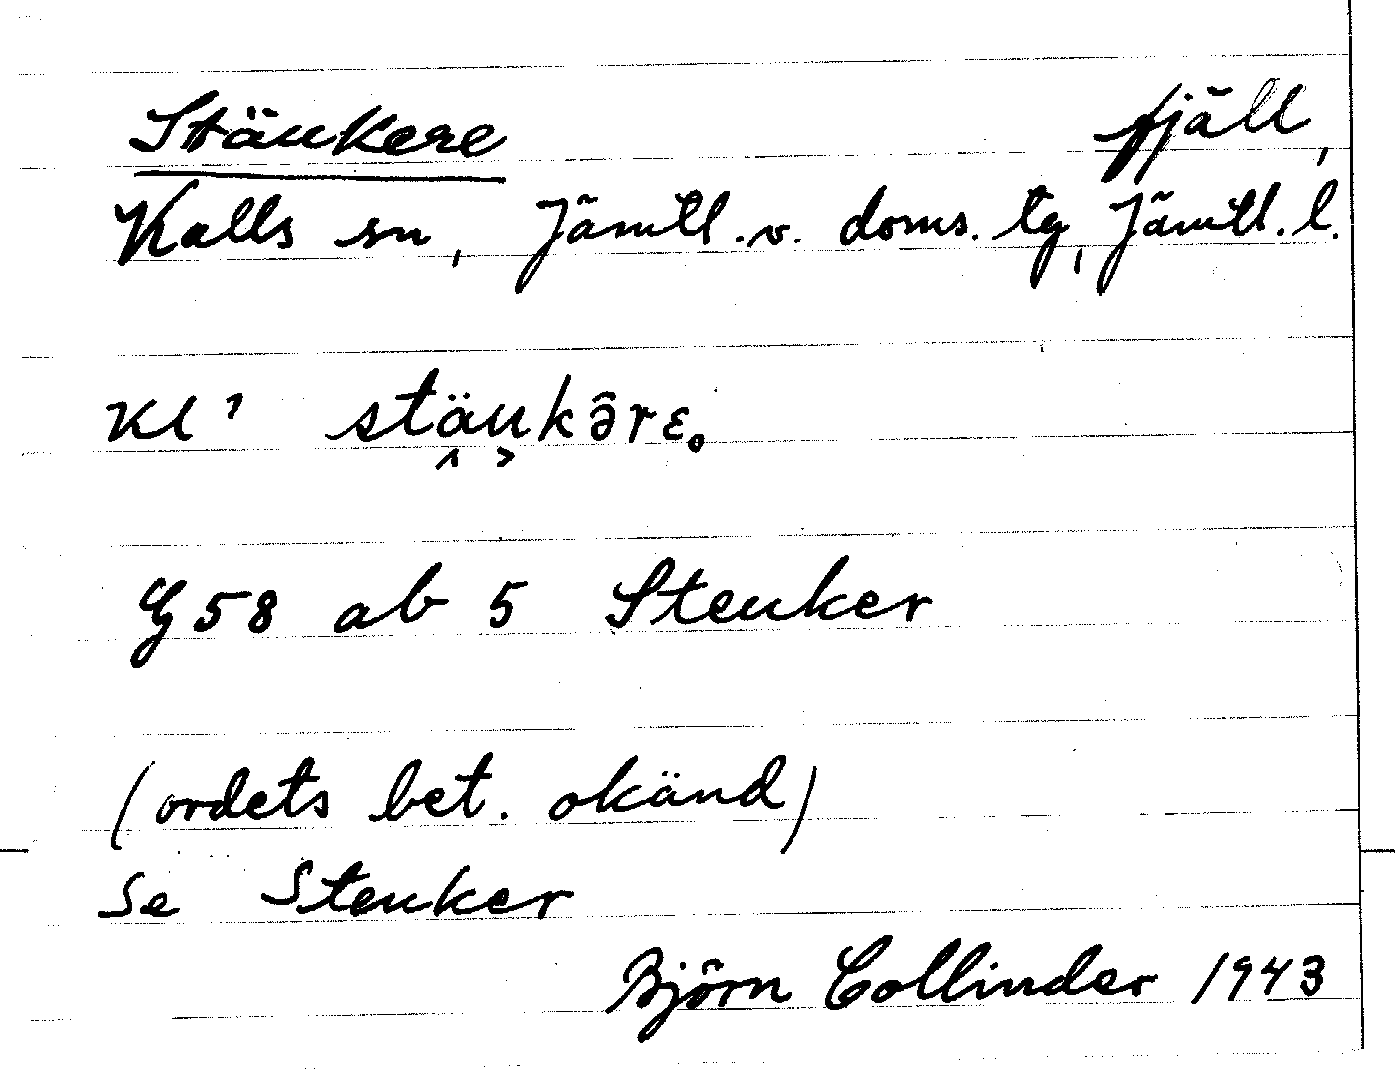 Stäukere fjäll,
Kalls sn, Jämtl. v. doms. tg, Jämtl. l.
Kl' stäukə̂rɛ.
G 58 ab 5 Steuker
(ordets bet. okänd)
Se Steuker
Björn Collinder 1943